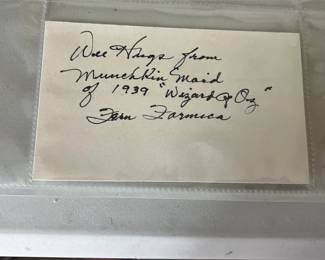 Wee Hugs from
Munchkin "Maid"
of 1939 "Wizard of Oz"
Fern Formica